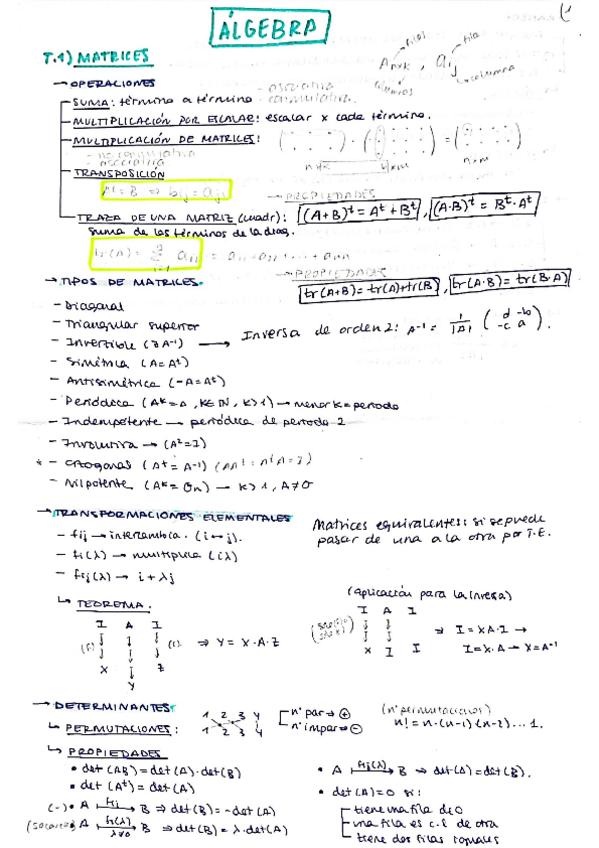 ÁLGEBRA
T.1) MATRICES
filas fila
Anxk , aij
columna
→ OPERACIONES
- asociativa
- SUMA: término a término - conmutativa.
- MULTIPLICACIÓN POR ESCALAR: escalar x cada término.
- MULTIPLICACIÓN DE MATRICES:
- no conmutativa
- asociativa
- TRANSPOSICIÓN
At = B ⇒ bij = aji
- PROPIEDADES
(A+B)t = At + Bt, (A·B)t = Bt·At
- TRAZA DE UNA MATRIZ (cuadr):
Suma de los términos de la diag.
- PROPIEDADES
tr(A+B) = tr(A)+tr(B), tr(A·B) = tr(B·A)
→ TIPOS DE MATRICES.
- Diagonal
- Triangular superior
- Invertible (∃A-1) → Inversa de orden 2: A-1 = 1/|A| (d -b -c a).
- Simétrica (A=At)
- Antisimétrica (-A=At)
- Periódica (Ak=A, K∈IN, K>1) → menor k = periodo
- Indempotente → periódica de periodo 2
- Involutiva → (A2=I)
* - Ortogonal (At = A-1) (AAt = AtA = I)
- Nilpotente (Ak = On) → K>1, A≠0
→ TRANSFORMACIONES ELEMENTALES
Matrices equivalentes: si se puede
pasar de una a la otra por T.E.
- fij → intercambia. (i↔j).
- fi(λ) → multiplica (iλ)
- fij(λ) → i + λj
↳ TEOREMA.
(aplicación para la inversa)
I A I
I A I
(f) (c) ⇒ Y = X·A·Z
⇒ I = XA·I →
X Z
X I I
I = X·A → X = A-1
Y
→ DETERMINANTES
↳ PERMUTACIONES:
1 2 3 4
1 2 3 4
nº par → +
nº impar → -
(nº permutaciones)
n! = n·(n-1)·(n-2)...1.
↳ PROPIEDADES
• det(AB) = det(A)·det(B)
• det(At) = det(A)
(-) • A fij→ B ⇒ det(B) = -det(A)
• A fi(λ)→ λ≠0 B ⇒ det(B) = λ·det(A)
• A fij(λ)→ B ⇒ det(A) = det(B).
• det(A)=0 si:
- tiene una fila de 0
- una fila es c.l de otra
- tiene dos filas iguales